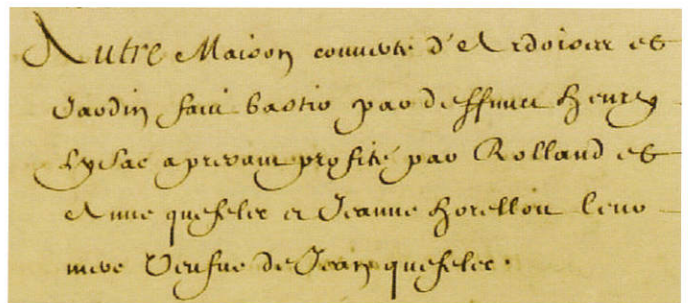 Autre Maison couverte d'Ardoisse et
Jardin faict bastir par deffunct Henry
Lysac apresant profité par Rolland et
Anne quefelec et Jeanne horellou leur
mere Veufve de Jean quefelec.